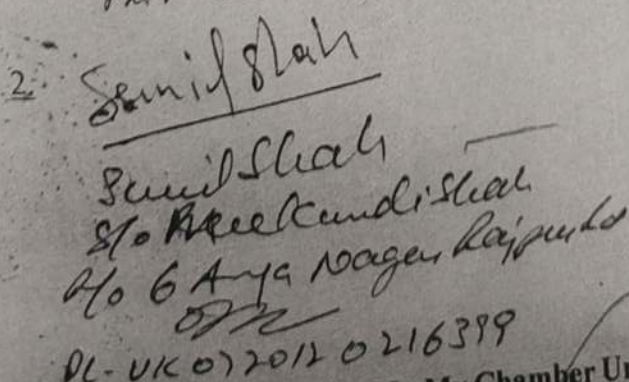 2. Sunil Shah
Sunil Shah
S/o Kundi Shah
R/o 6 Arya Nagar
DL-UK0720120216399
Chamber